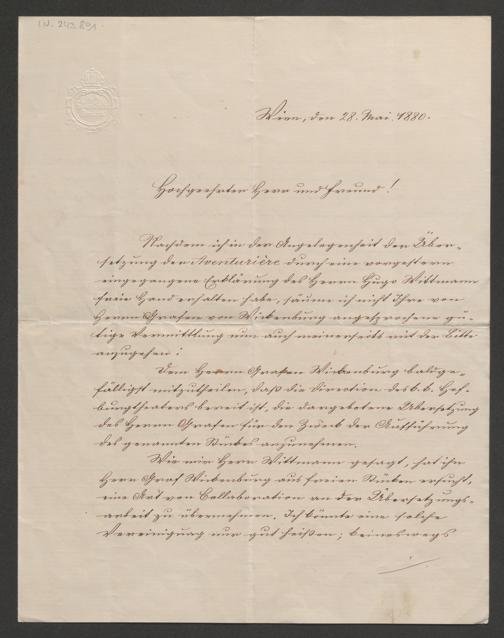 I.N. 243.891
Wien, den 28. Mai 1880.
Hochgeehrter Herr und Freund!
Nachdem ich in der Angelegenheit der Über-
setzung der Aventurière durch eine vorgestern
eingegangene Erklärung des Herrn Hugo Wittmann
freie Hand erhalten habe, säume ich nicht Ihre von
Herrn Grafen von Wickenburg angesprochene gü-
tige Vermittlung nun auch meinerseits mit der Bitte
anzugehen:
Dem Herrn Grafen Wickenburg baldge-
fälligst mitzutheilen, daß die Direction des k. k. Hof-
burgtheaters bereit ist, die dargebotene Übersetzung
des Herrn Grafen für den Zweck der Aufführung
des genannten Stückes anzunehmen.
Wie mir Herr Wittmann gesagt, hat ihn
Herr Graf Wickenburg aus freien Stücken ersucht,
eine Art von Collaboration an der Übersetzungs-
arbeit zu übernehmen. Ich könnte eine solche
Vereinigung nur gut heißen; keineswegs